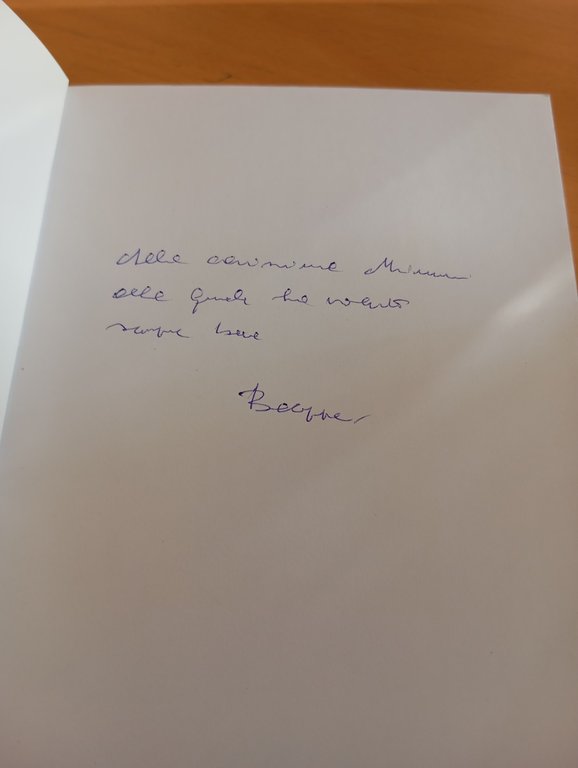 Alla carissima
alla quale ho voluto
sempre bene
Beppe